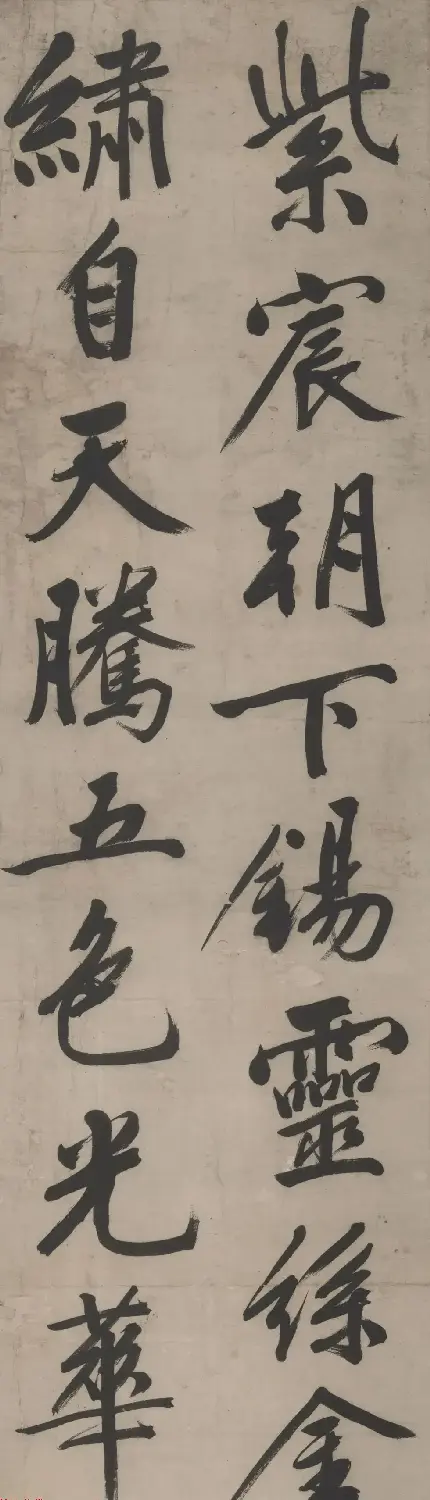 紫宸朝下錫靈絲金
繡自天騰五色光華